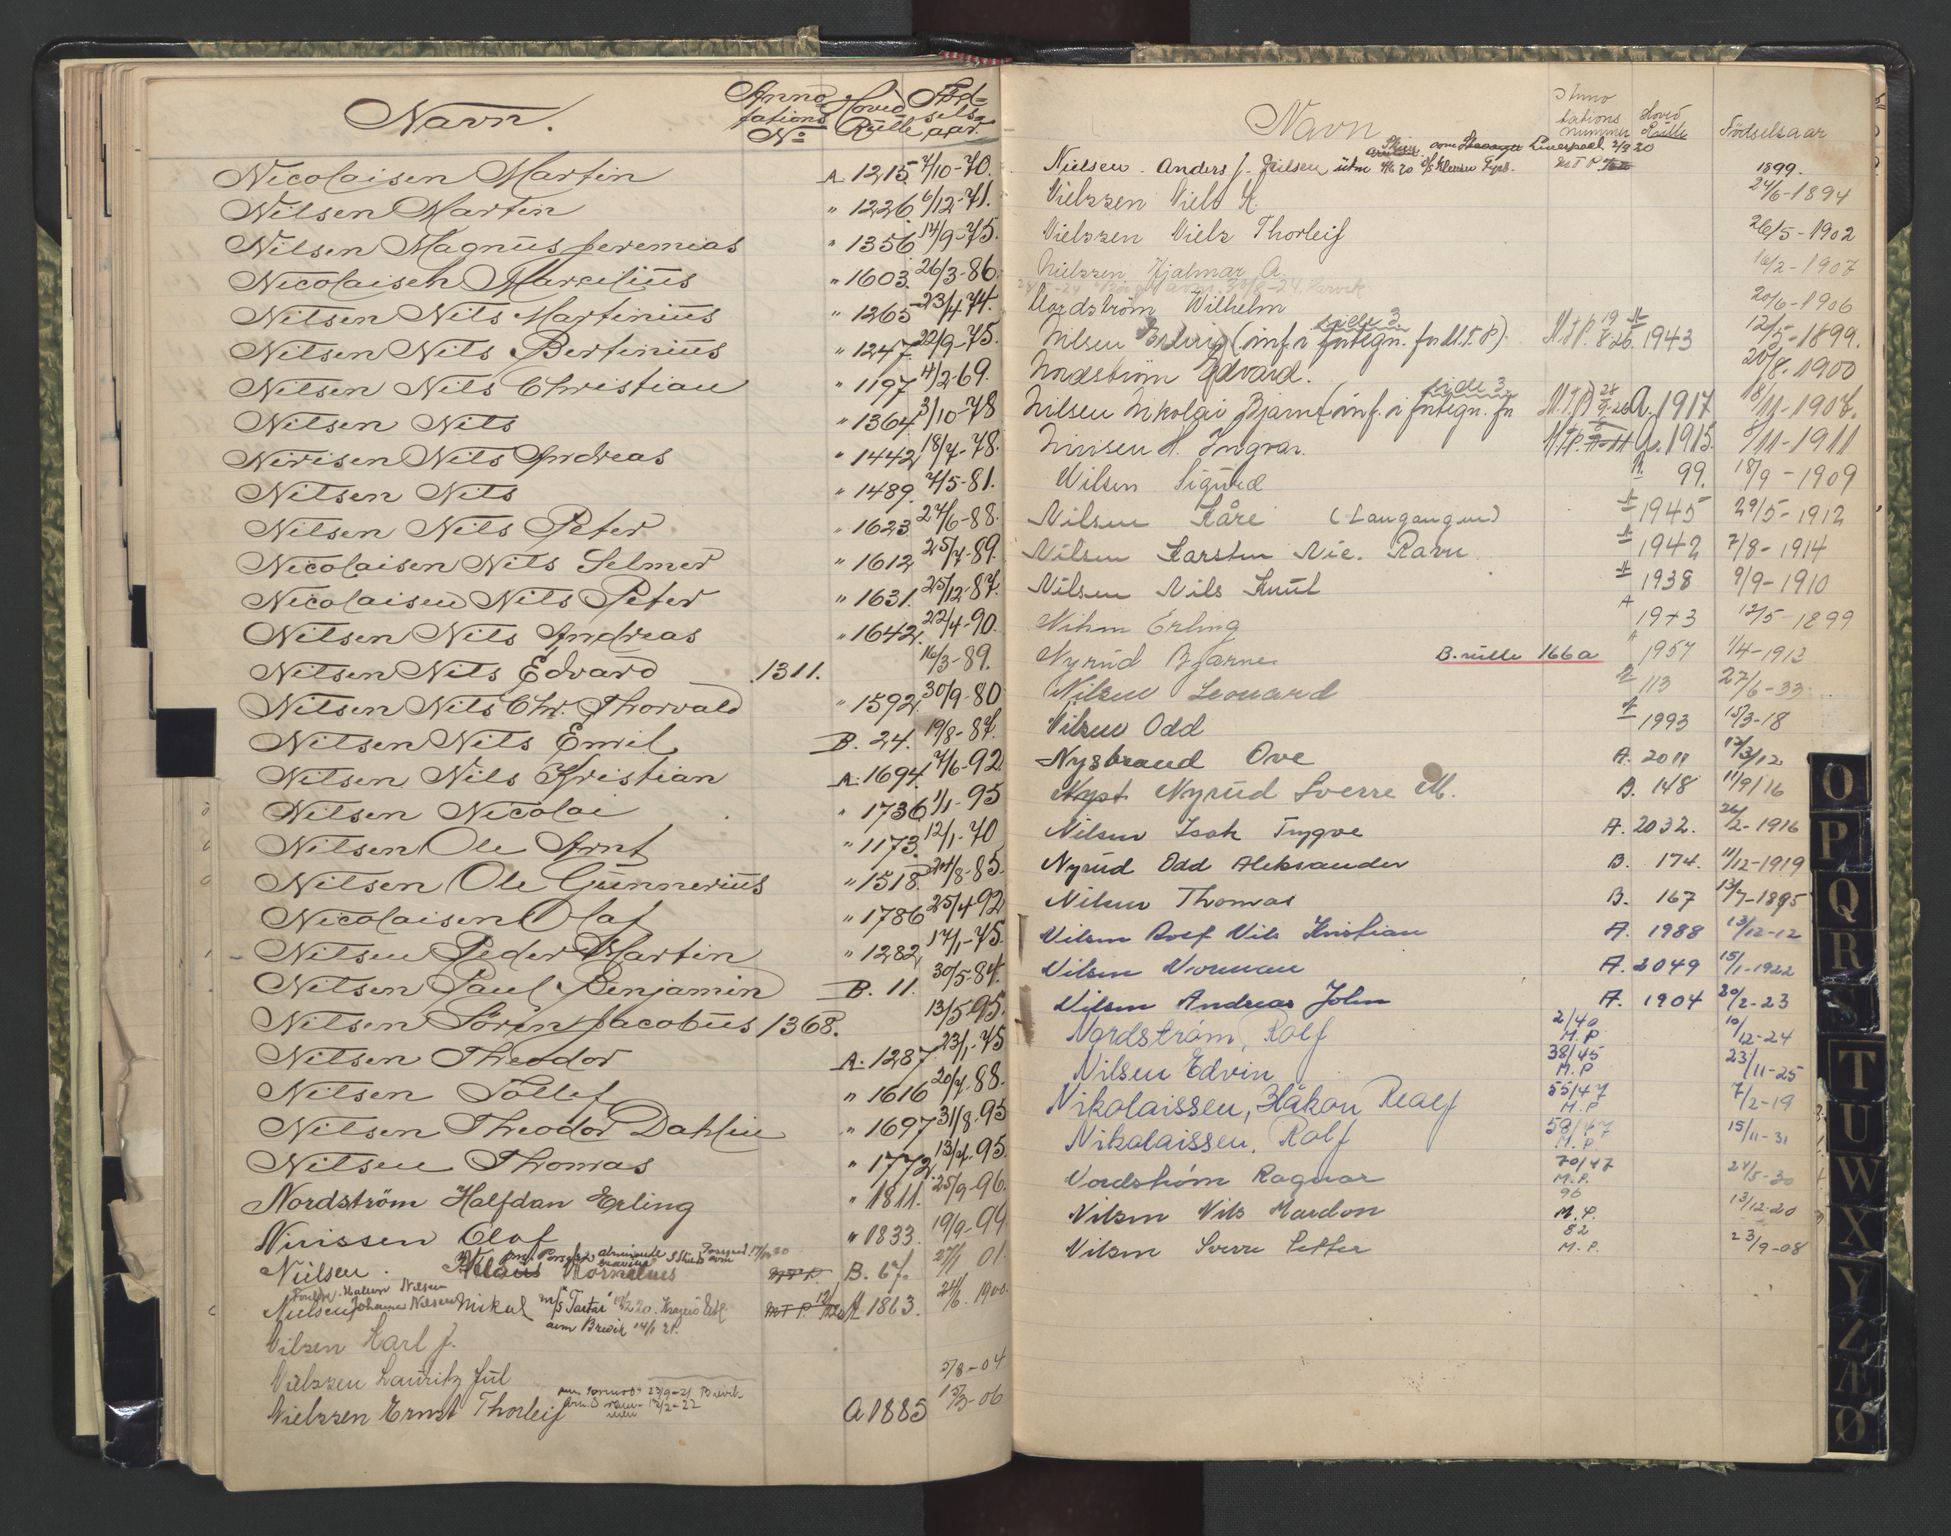 Navn.
Anno-
tations
No
Hoved
Rulle
Fød-
sels-
aar.
Nicolaisen Martin A. 1215. 7/10-70.
Nilsen Martin " 1226. 6/12-71.
Nilsen Magnus Jeremias " 1356 14/9-75.
Nicolaisen Marcelius " 1603. 26/3-86.
Nilsen Nils Martinius " 1265 23/4-74.
Nilsen Nils Bertinius " 1247. 22/9-75.
Nilsen Nils Christian " 1197 4/2-69.
Nilsen Nils " 1364 3/10-78
Nirisen Nils Andreas " 1442 18/7-78.
Nilsen Nils " 1489. 7/5-81.
Nilsen Nils Peter " 1623 27/6-88.
Nicolaisen Nils Selmer " 1612 25/7-89.
Nicolaisen Nils Peter " 1631. 25/12-87.
Nilsen Nils Andreas " 1642. 22/4-90.
Nilsen Nils Edvard 1311. 16/3-89.
Nilsen Nils Chr. Thorvald " 1592. 30/9-80
Nilsen Nils Emil B. 24. 19/8-87.
Nilsen Nils Kristian A. 1694. 7/6-92
Nilsen Nicolai " 1736 1/1-95
Nilsen Ole Arnt " 1173. 12/1-70
Nilsen Ole Gunnerius " 1518. 24/8-85.
Nicolaisen Olaf " 1786 25/4-92
Nilsen Peder Martin " 1282. 17/1-75.
Nilsen Paul Benjamin B. 11. 30/5-84.
Nilsen Sören Jacobus 1368. 13/5-95.
Nilsen Theodor A. 1287. 23/1-75
Nilsen Tollef " 1616 20/7-88.
Nilsen Theodor Dahlin " 1697 31/8-95
Nilsen Thomas " 1772. 13/7-95.
Nordström Halfdan Erling " 1811. 25/9-96.
Nirissen Olaf " 1833. 19/9-99.
Nielsen. Klaus Kornelius B. 67. 27/1 01.
Nielsen Johannes Nilsen Mikal m/s "Tartar" A 1863. 24/6. 1900.
avm Brevik 14/1 21.
Nilsen Karl J.
Nielssen Lauritz Jul 2/8-04
Nielssen Ernst Thorleif A 1885 13/3-06
Navn
Anno
tations
nummer
Hoved
Rulle
Fødselsaar
Liverpool 2/9 20
Nielsen. Anders J. Nilsen 1899.
Nielssen Niels K. 24/6-1894
Nielssen Niels Thorleif 26/5-1902
Nielssen Hjalmar A. 16/2-1907
Nordström Wilhelm 20/6-1906
side 3
Nilsen Erling (inf. i fortegn. for M.T.P.) M.T.P. 19 8-26. 1943 12/5-1899.
Nordström Edvard. 20/8. 1900
side 3
Nilsen Nikolai Bjarne (inf. i fortegn. for M.T.P) 28 9-26 A. 1917 18/11-1907.
Nirisen H. Ingvar. M.T.P. A. 1915. 9/11-1911
Nilsen Sigurd 99. 18/9-1909
Nilsen Kåre (Langangen) A 1945 29/5-1912
Nilsen Karsten Nic. Ravn A 1942 7/8-1914
Nilsen Nils Knut A 1938 9/9-1910
Nilsen Erling A 1943 12/5-1899
Nyrud Bjarne B. rulle 166a A 1957 1/4-1913
Nilsen Leonard 113 27/6-33
Nilsen Odd A 1993 15/3-18
Nysbraud Ove A. 2011 12/3/12
Nyst Nyrud Sverre M. B. 148 11/9/16
Nilsen Isak Trygve A. 2032. 26/2-1916
Nyrud Odd Aleksander B. 174. 11/12-1919
Nilsen Thomas B. 167 13/7-1895
Nilsen Rolf Nils Kristian A. 1988 13/12-12
Nilsen Norman A. 2049 15/1-1922
Nilsen Andreas John A. 1904 20/2-23
Nordström, Rolf 2/40 M.P 10/12-24
Nilsen Edvin 38/45 M.P 23/11-25
Nikolaissen, Håkon Realf 55/47 M.P 7/2-19
Nikolaissen, Rolf 58/47 M.P. 15/11-31
Nordström Ragnar 70/47 M.P. 24/5-30
Nilsen Nils Mardon 96 M.P. 13/12-20
Nilsen Sverre Petter 82 M.P. 23/9-08
O
P
Q
R
S
T
U
W
X
Y
Z
Æ
Ø